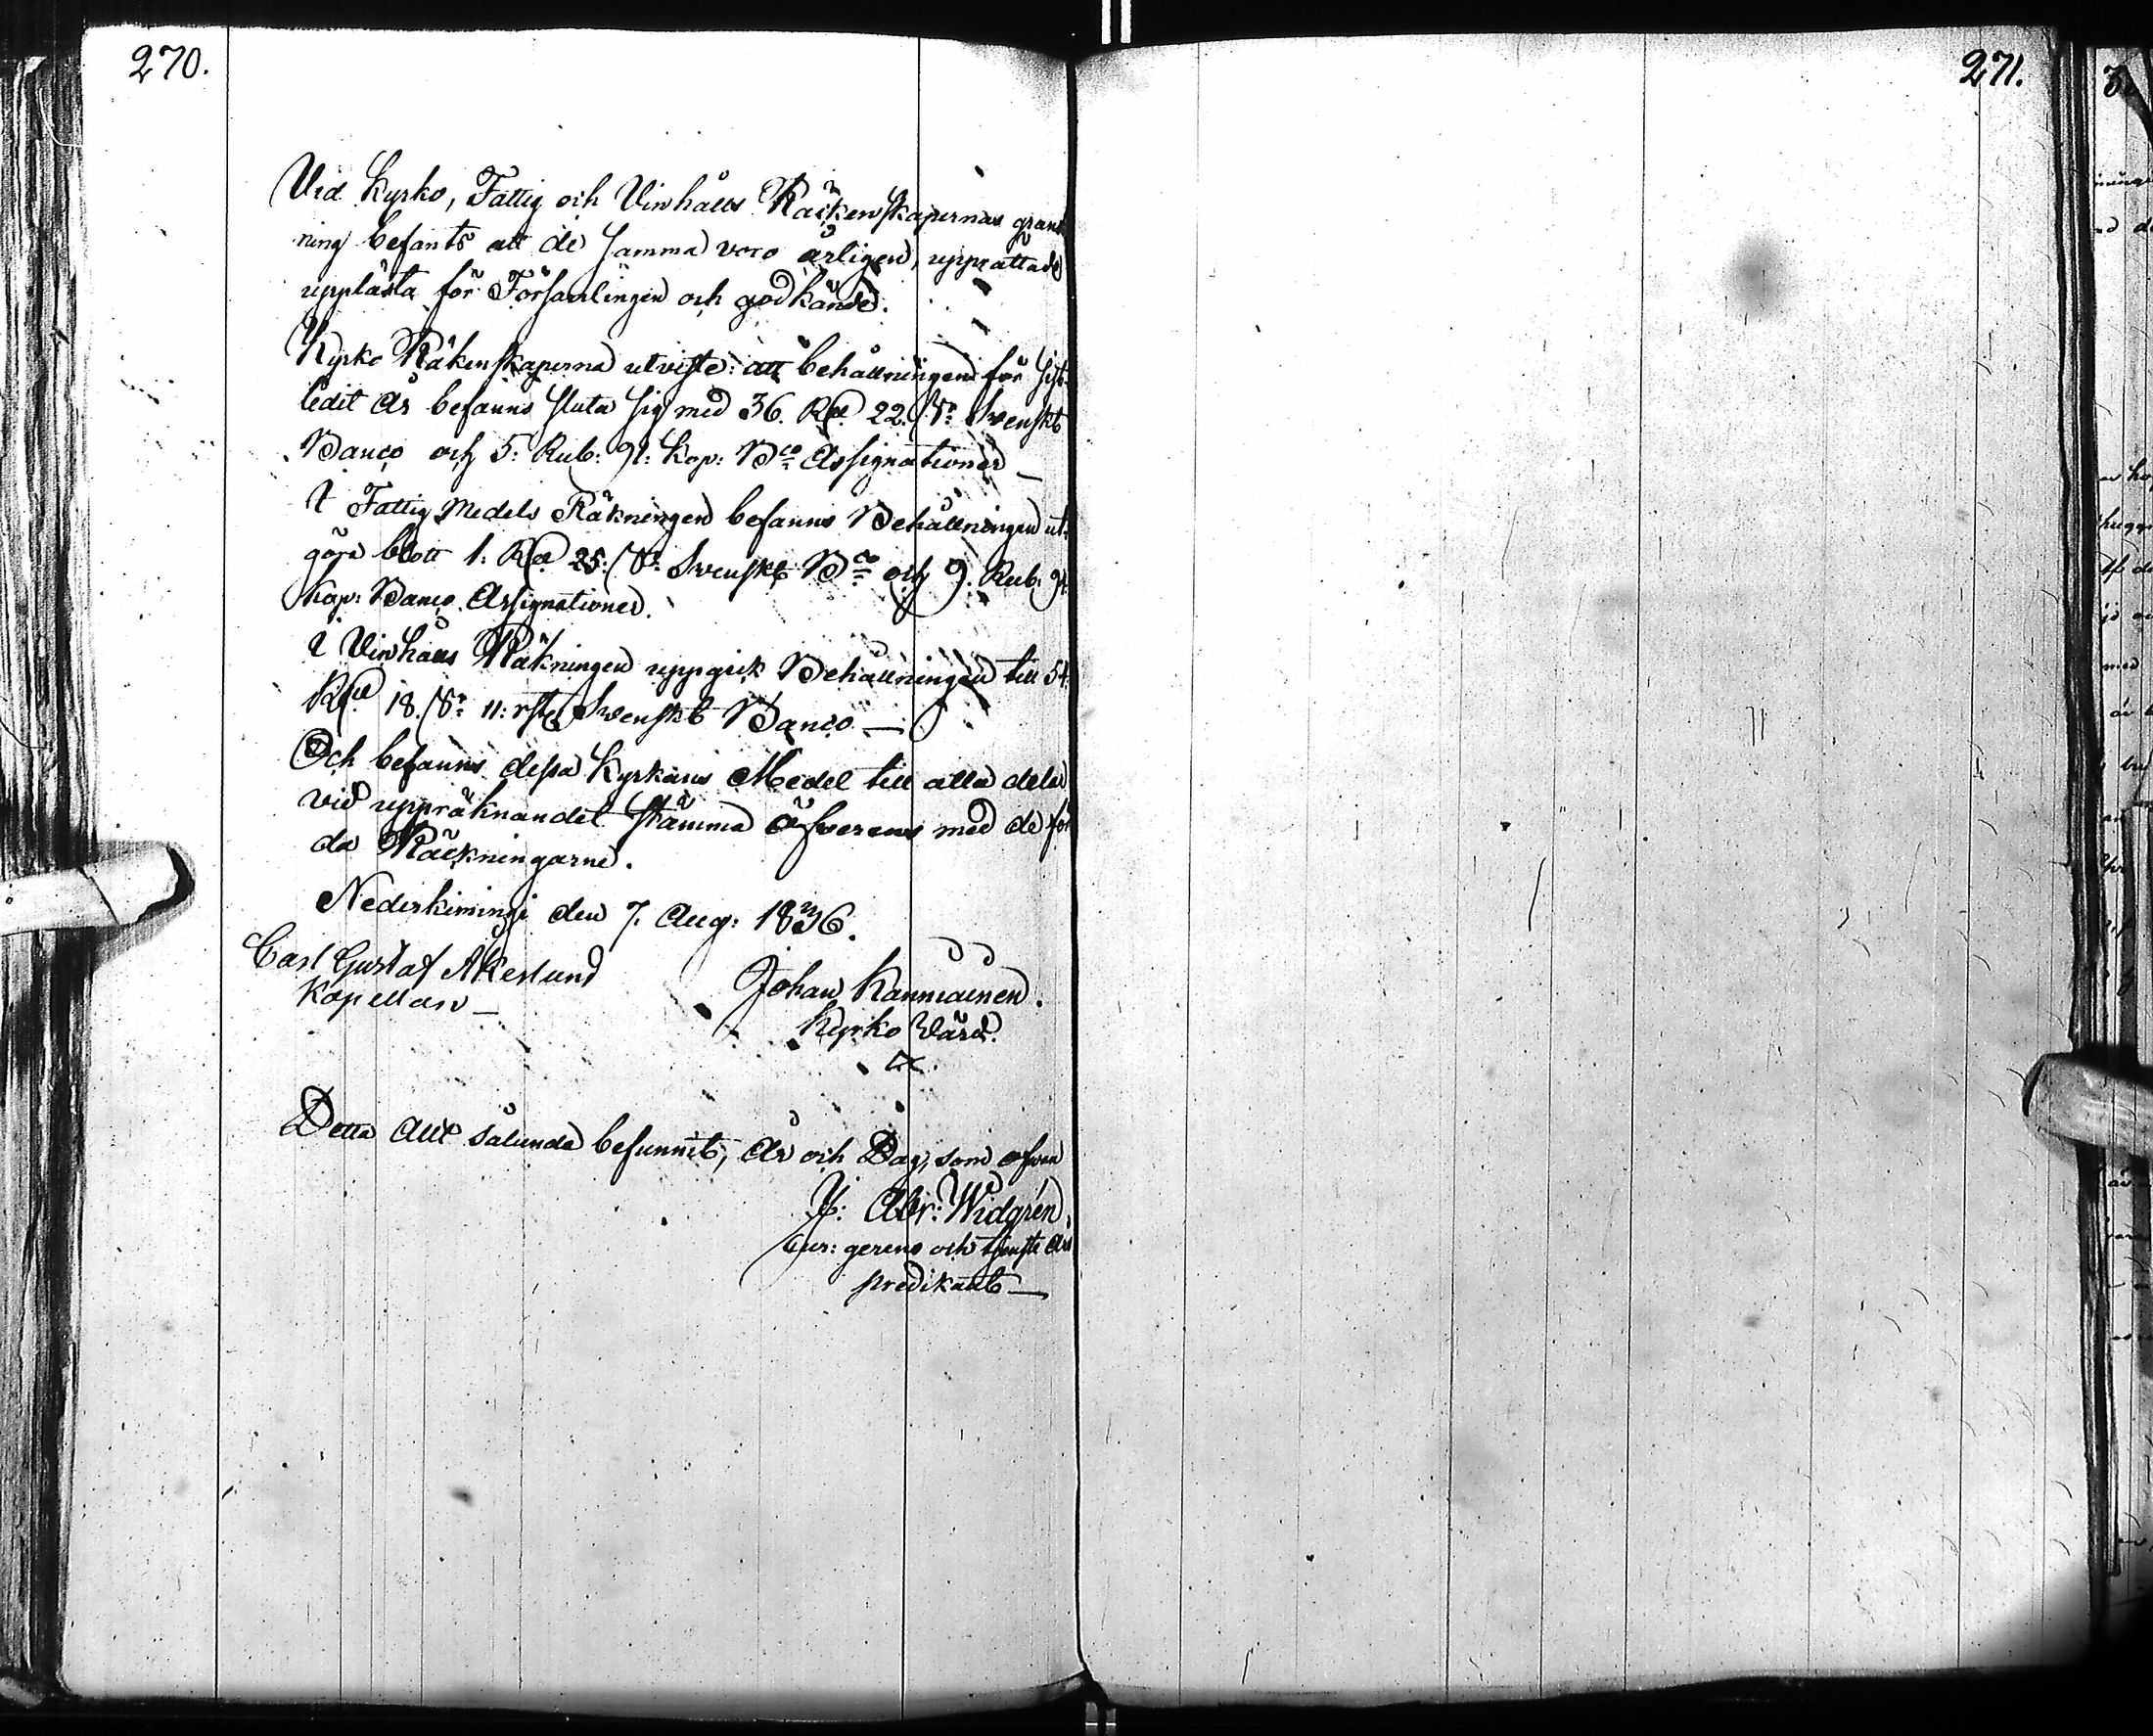 270.
Vid Kyrko, Fattig och Vinhålls Räckenskapernas gransk
ning befants att de samma voro årligen, upprättade
upplästa för Församlingen och godkände.
Kyrko Räkenskaperna utviste: att behållningen för sist-
ledit År befanns sluta sig med 36. Rd 22. s: Svenskt
Banco och 5: Rub: 91: Kop: Bco Assignationer
I Fattig Medels Räkningen befanns Behållningen ut-
göra blott 1: Rd 25: s: Svenskt Bco och 9. Rub: 94
Kop: Banco Assignationer.
I Vinhålls Räkningen uppgick Behållningen till 54.
Rd 18. s: 11: rst Svenskt Banco —
Och befanns dessa Kyrkans Medel till alla delar
vid uppräknandet stämma öfverens med de för
da Räckningarne.
Nederkimingi den 7. Aug: 1836.
Carl Gustaf Akerlund
Kapellan —
Johan Kanniainen.
Kyrko Värd.
Detta Allt sålunda befunnits, År och Dag, som ofvan
Abr: Widgrén,
Cur: gerens och tjenste
predikant —
271.